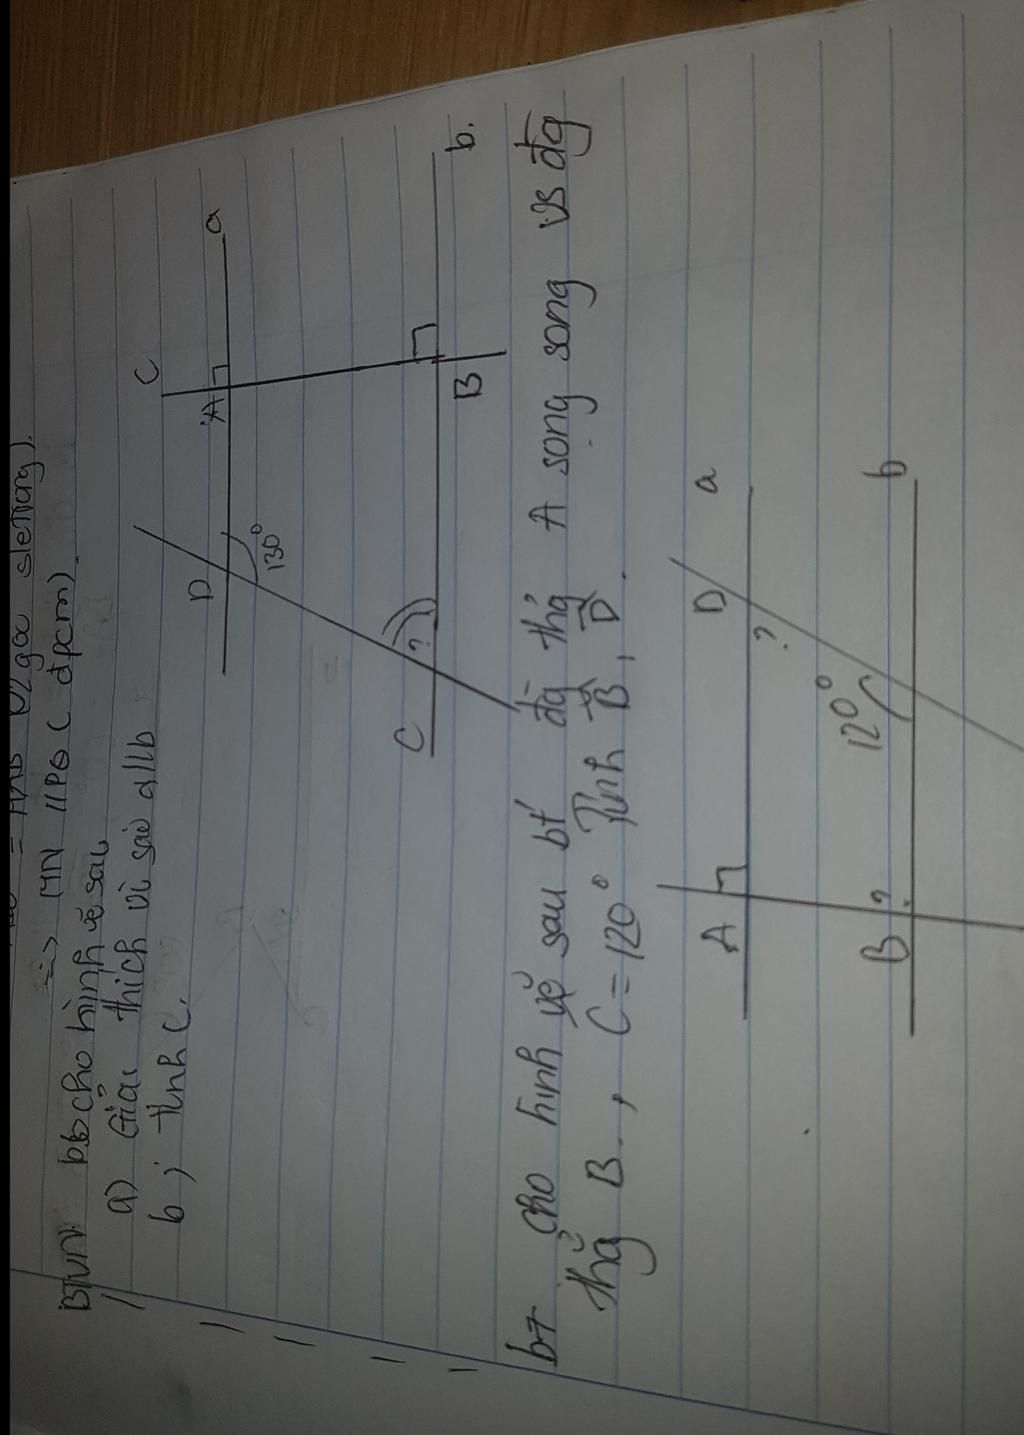 => MN // PQ (đpcm)
BTVN: b6 cho hình vẽ sau
a) Giải thích vì sao a//b
b; tính C.
C
A
a
D
130°
C
?
B
b.
b7 cho hình vẽ sau bt đg thg A song song vs đg
thg B., C = 120° Tính B, D.
A
D
a
?
120°
B
?
b